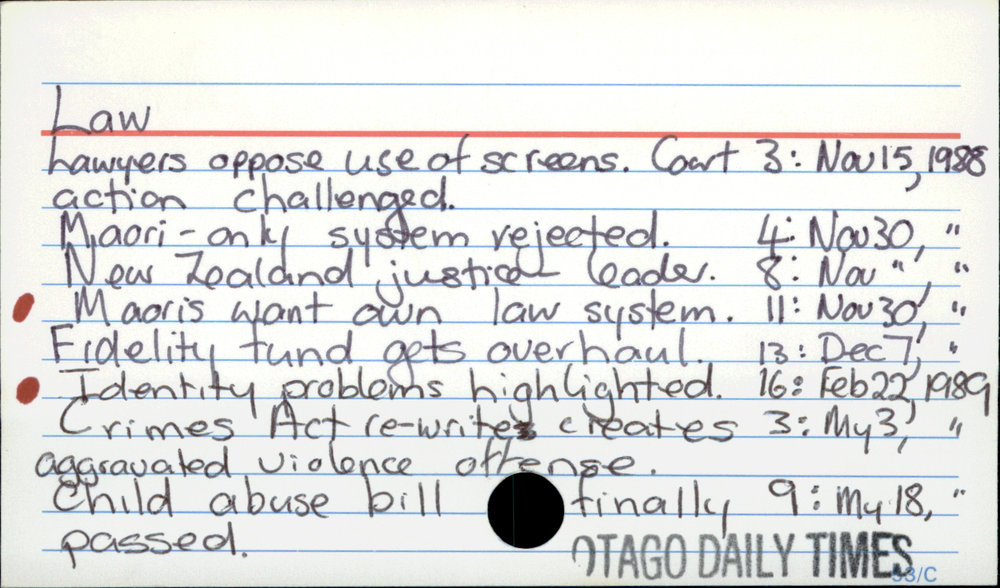 Law
Lawyers oppose use of screens. Court 3: Nov 15, 1988
action challenged.
Maori-only system rejected. 4: Nov 30, "
New Zealand justice leader. 8: Nov ", "
Maoris want own law system. 11: Nov 30, "
Fidelity fund gets overhaul. 13: Dec 7, "
Identity problems highlighted. 16: Feb 22, 1989
Crimes Act re-write creates 3: My 3, "
aggravated violence offense.
Child abuse bill finally 9: My 18, "
passed.
OTAGO DAILY TIMES
53/C